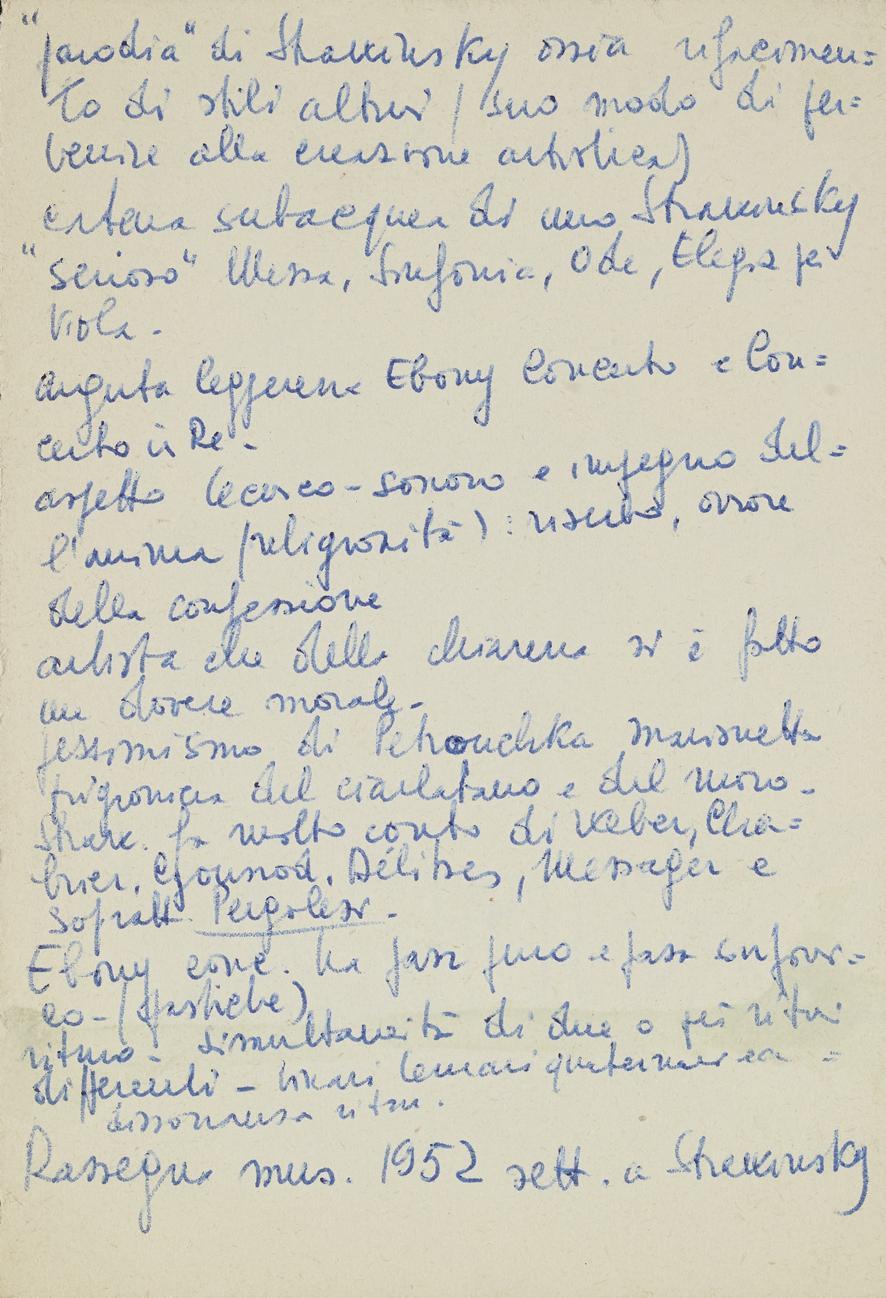 "parodia" di Strawinsky ossia rifacimen=
to di stili altrui (suo modo di per=
venire alla creazione artistica)
catena subacquea di uno Strawinsky
"serioso" Messa, Sinfonia, Ode, Elegia per
Viola -
arguta leggerezza Ebony Concerto e Con=
certo in Re -
aspetto -sonoro e impegno del=
l'anima (religiosità): riserbo, orrore
della confessione
artista che della chiarezza si è fatto
un dovere morale -
pessimismo di Petrouchka marionetta
prigioniera del ciarlatano e del moro -
Straw. fa molto conto di Weber, Cha=
brier, Gounod, Délibes, Messager e
sopratt. Pergolesi -
Ebony conc. tra jazz puro e jazz sinfoni=
co - (pastiche)
ritmo - simultaneità di due o più ritmi
differenti - binari ternari quaternari ecc =
dissonanza ritm.
Rassegna mus. 1952 sett. a Strawinsky